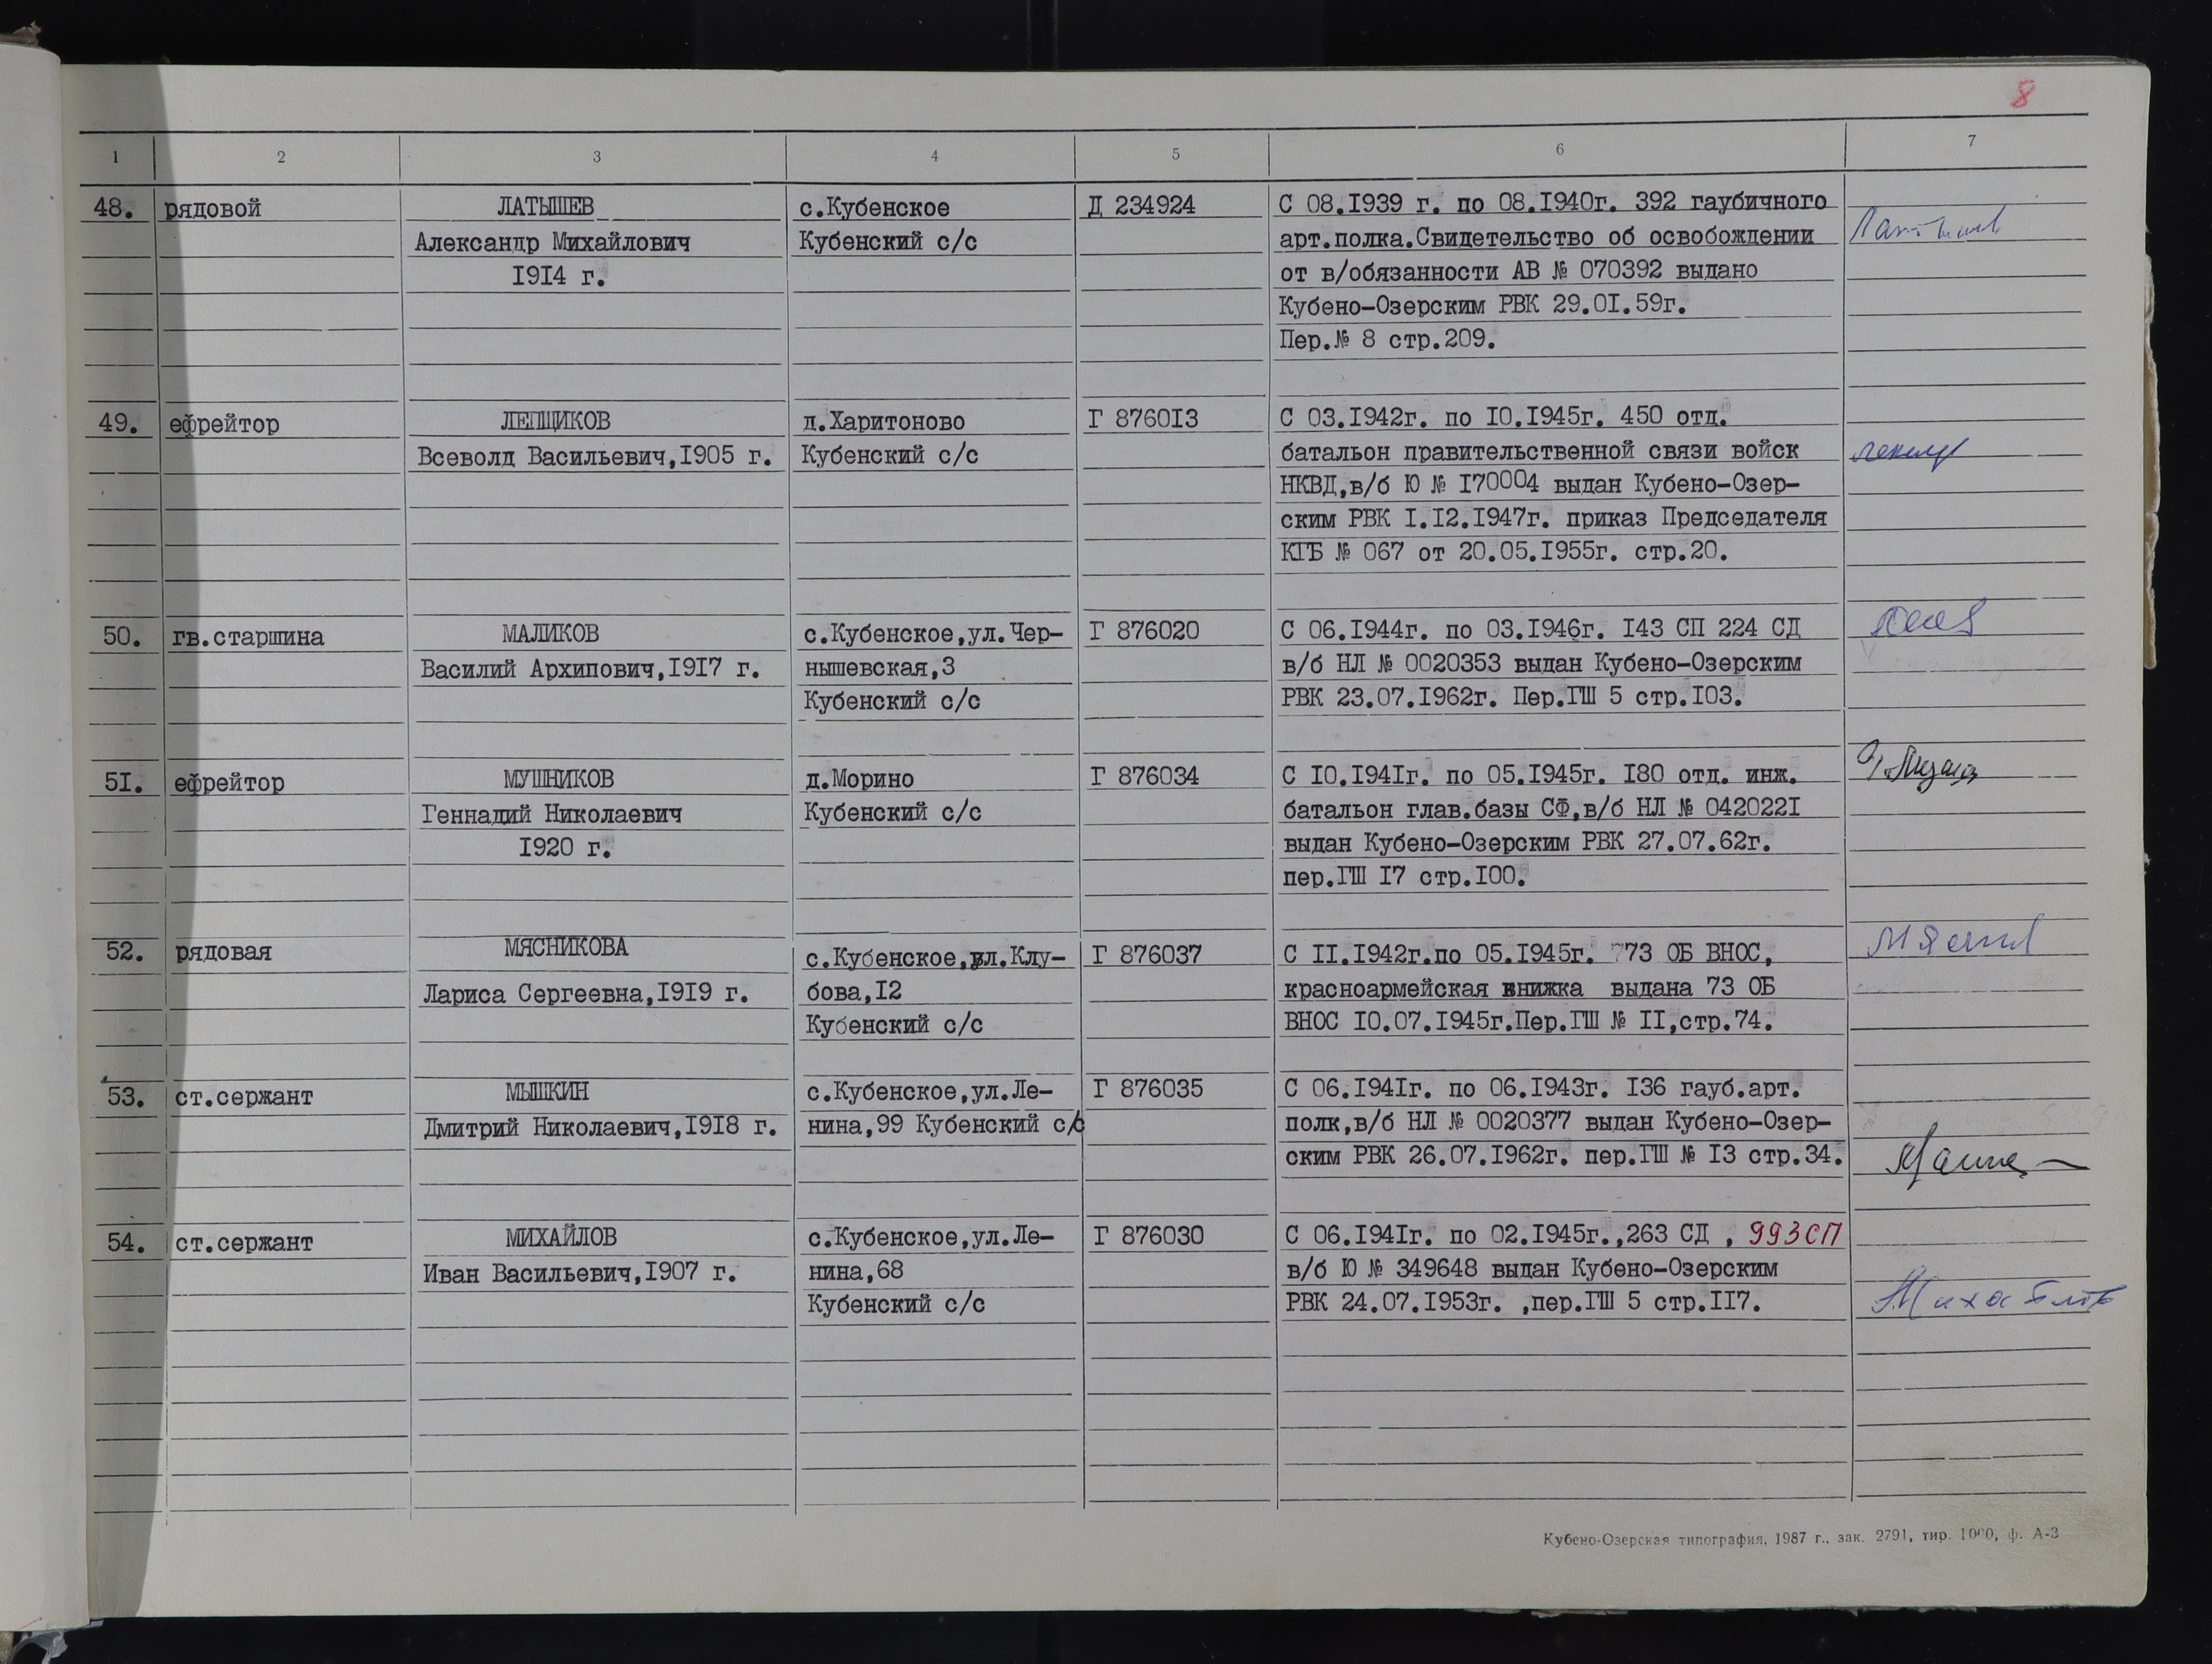 8
1 2 3 4 5 6 7
48. рядовой ЛАТЫШЕВ с.Кубенское Д 234924 С 08.1939 г. по 08.1940г. 392 гаубичного
Александр Михайлович Кубенский с/с арт.полка.Свидетельство об освобождении
1914 г. от в/обязанности АВ № 070392 выдано
Кубено-Озерским РВК 29.01.59г.
Пер.№ 8 стр.209.
49. ефрейтор ЛЕПЩИКОВ д.Харитоново Г 876013 С 03.1942г. по 10.1945г. 450 отд.
Всеволд Васильевич,1905 г. Кубенский с/с батальон правительственной связи войск
НКВД,в/б Ю № 170004 выдан Кубено-Озер-
ским РВК 1.12.1947г. приказ Председателя
КГБ № 067 от 20.05.1955г. стр.20.
50. гв.старшина МАЛИКОВ с.Кубенское,ул.Чер- Г 876020 С 06.1944г. по 03.1946г. 143 СП 224 СД
Василий Архипович,1917 г. нышевская,3 в/б НЛ № 0020353 выдан Кубено-Озерским
Кубенский с/с РВК 23.07.1962г. Пер.ГШ 5 стр.103.
51. ефрейтор МУШНИКОВ д.Морино Г 876034 С 10.1941г. по 05.1945г. 180 отд. инж.
Геннадий Николаевич Кубенский с/с батальон глав.базы СФ,в/б НЛ № 0420221
1920 г. выдан Кубено-Озерским РВК 27.07.62г.
пер.ГШ 17 стр.100.
52. рядовая МЯСНИКОВА с.Кубенское,ул.Клу- Г 876037 С 11.1942г.по 05.1945г. 773 ОБ ВНОС,
Лариса Сергеевна,1919 г. бова,12 красноармейская книжка выдана 73 ОБ
Кубенский с/с ВНОС 10.07.1945г.Пер.ГШ № 11,стр.74.
53. ст.сержант МЫШКИН с.Кубенское,ул.Ле- Г 876035 С 06.1941г. по 06.1943г. 136 гауб.арт.
Дмитрий Николаевич,1918 г. нина,99 Кубенский с/с полк,в/б НЛ № 0020377 выдан Кубено-Озер-
ским РВК 26.07.1962г. пер.ГШ № 13 стр.34.
54. ст.сержант МИХАЙЛОВ с.Кубенское,ул.Ле- Г 876030 С 06.1941г. по 02.1945г.,263 СД , 993СП
Иван Васильевич,1907 г. нина,68 в/б Ю № 349648 выдан Кубено-Озерским
Кубенский с/с РВК 24.07.1953г. ,пер.ГШ 5 стр.117.
Кубено-Озерская типография, 1987 г., зак. 2791, тир. 1000, ф. А-3